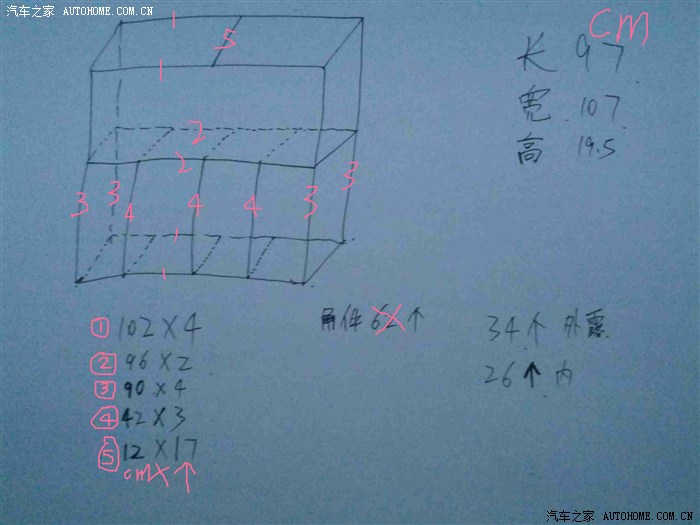 汽车之家 AUTOHOME.COM.CN
CM
长 97
宽 107
高 19.5
1
5
1
2
2
3 3 4 4 4 3 3
1
1
① 102 X 4
② 96 X 2
③ 90 X 4
④ 42 X 3
⑤ 12 X 17
cm X 个
角件 62 个
34 个 外露
26 个 内
汽车之家 AUTOHOME.COM.CN